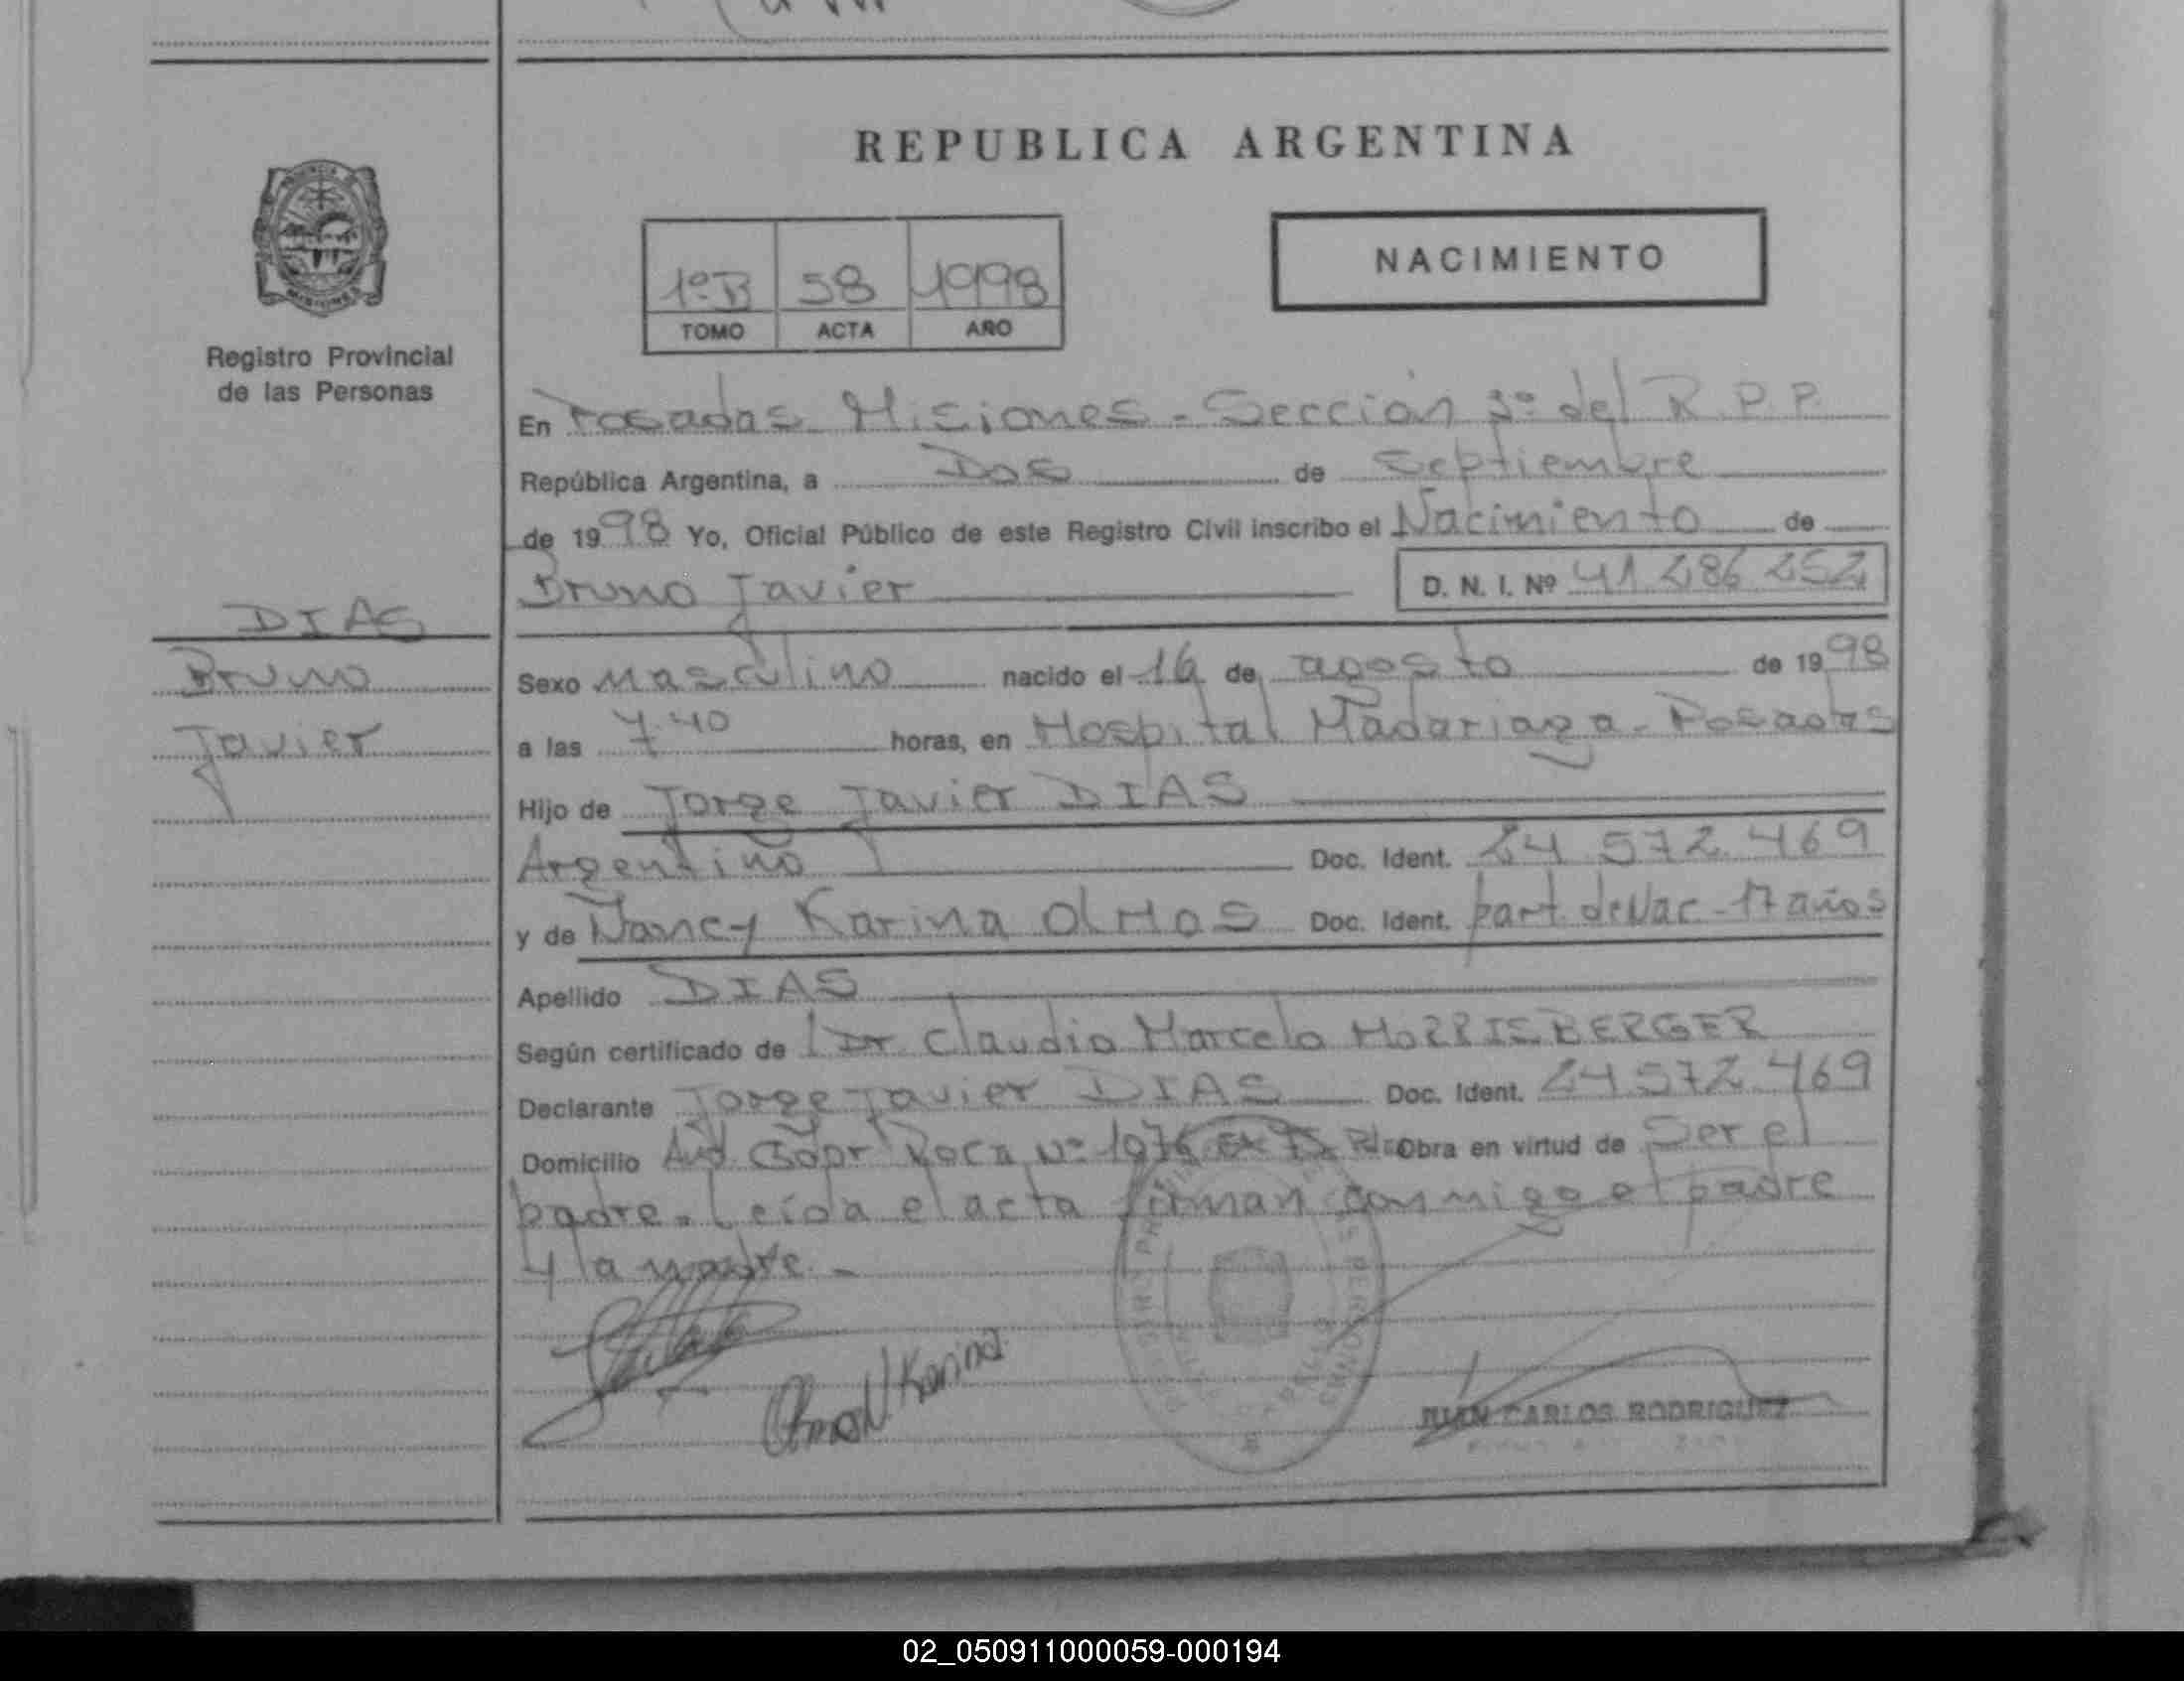 REPUBLICA ARGENTINA
PROVINCIA DE MISIONES
Registro Provincial
de las Personas
1º B 58 1998
TOMO ACTA AÑO
NACIMIENTO
En Posadas Misiones - Sección 3º del R.P.P.
República Argentina, a Dos de Septiembre
de 1998 Yo, Oficial Público de este Registro Civil inscribo el Nacimiento de
Bruno Javier D. N. I. Nº 41 286 252
DIAS
Bruno
Javier
Sexo Masculino nacido el 16 de agosto de 1998
a las 7.40 horas, en Hospital Madariaga - Posadas
Hijo de Jorge Javier DIAS
Argentino Doc. Ident. 24 572.469
y de Nancy Karina OLMOS Doc. Ident. part. de Nac - 17 años
Apellido DIAS
Según certificado de Dr. Claudio Marcelo
Declarante Jorge Javier DIAS Doc. Ident. 24 572.469
Domicilio Avd. Roca Nº 1076 Obra en virtud de Ser el
padre. Leída el acta firman conmigo el padre
y la madre. -
Olmos N Karina
JUAN CARLOS RODRIGUEZ
02_050911000059-000194